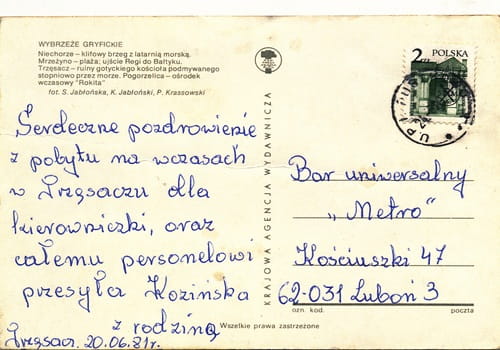 WYBRZEŻE GRYFICKIE
Niechorze – klifowy brzeg z latarnią morską.
Mrzeżyno – plaża; ujście Regi do Bałtyku.
Trzęsacz – ruiny gotyckiego kościoła podmywanego
stopniowo przez morze. Pogorzelica – ośrodek
wczasowy "Rokita"
fot. S. Jabłońska, K. Jabłoński, P. Krassowski
Serdeczne pozdrowienie
z pobytu na wczasach
w Trzęsaczu dla
kierowniczki, oraz
całemu personelowi
przesyła Kozińska
z rodziną
Trzęsacz. 20.06.81r.
KRAJOWA AGENCJA WYDAWNICZA
Wszelkie prawa zastrzeżone
2 POLSKA
Bar uniwersalny
„Metro"
Kościuszki 47
62-031 Luboń 3
ozn. kod. poczta